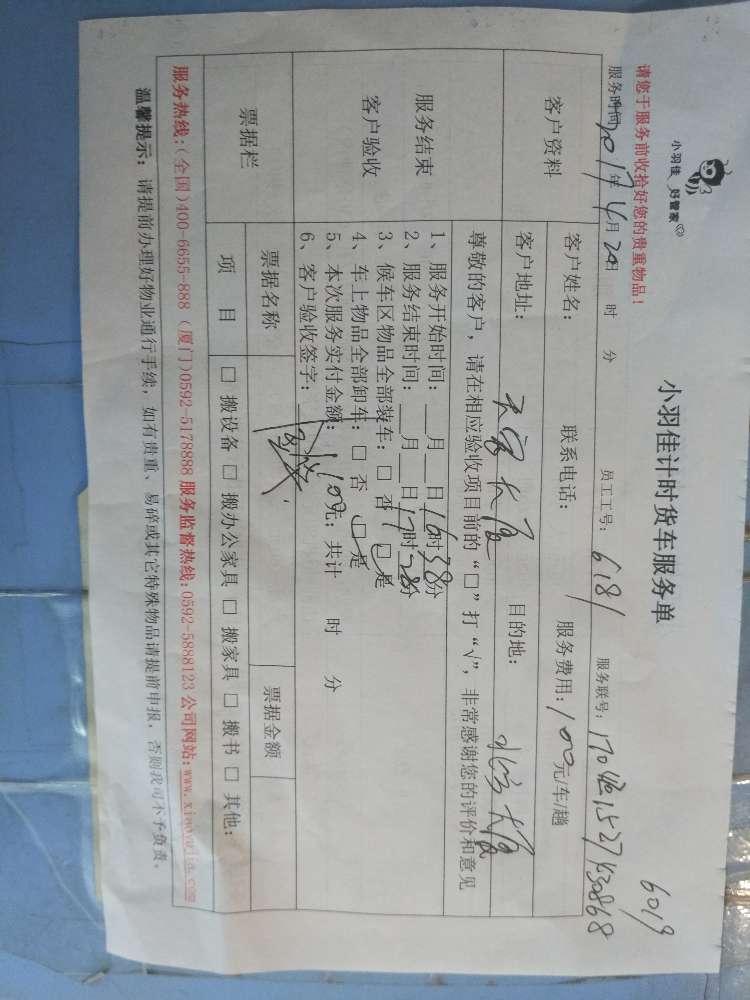 小羽佳 好管家
小羽佳计时货车服务单
6019
请您于服务前收拾好您的贵重物品!
服务时间: 2017年 4月 20日 时 分 员工工号: 6181 服务联号:
客户资料
客户姓名: 联系电话: 服务费用: 100元/车/趟
客户地址: 目的地: 大厦
服务结束
客户验收
尊敬的客户, 请在相应验收项目前的“□”打“√”, 非常感谢您的评价和意见
1、服务开始时间: 月 日16时38分
2、服务结束时间: 月 日17时28分
3、候车区物品全部装车: □ 否 □ 是
4、车上物品全部卸车: □ 否 □ 是
5、本次服务实付金额: 100元; 共计 时 分
6、客户验收签字:
票据栏 票据名称 票据金额
项 目 □ 搬设备 □ 搬办公家具 □ 搬家具 □ 搬书 □ 其他:
服务热线:(全国)400-6655-888 (厦门)0592-5178888 服务监督热线:0592-5888123 公司网站:www.xiaoyujia.com
温馨提示: 请提前办理好物业通行手续, 如有贵重、易碎或其它特殊物品请提前申报, 否则我司不予负责。